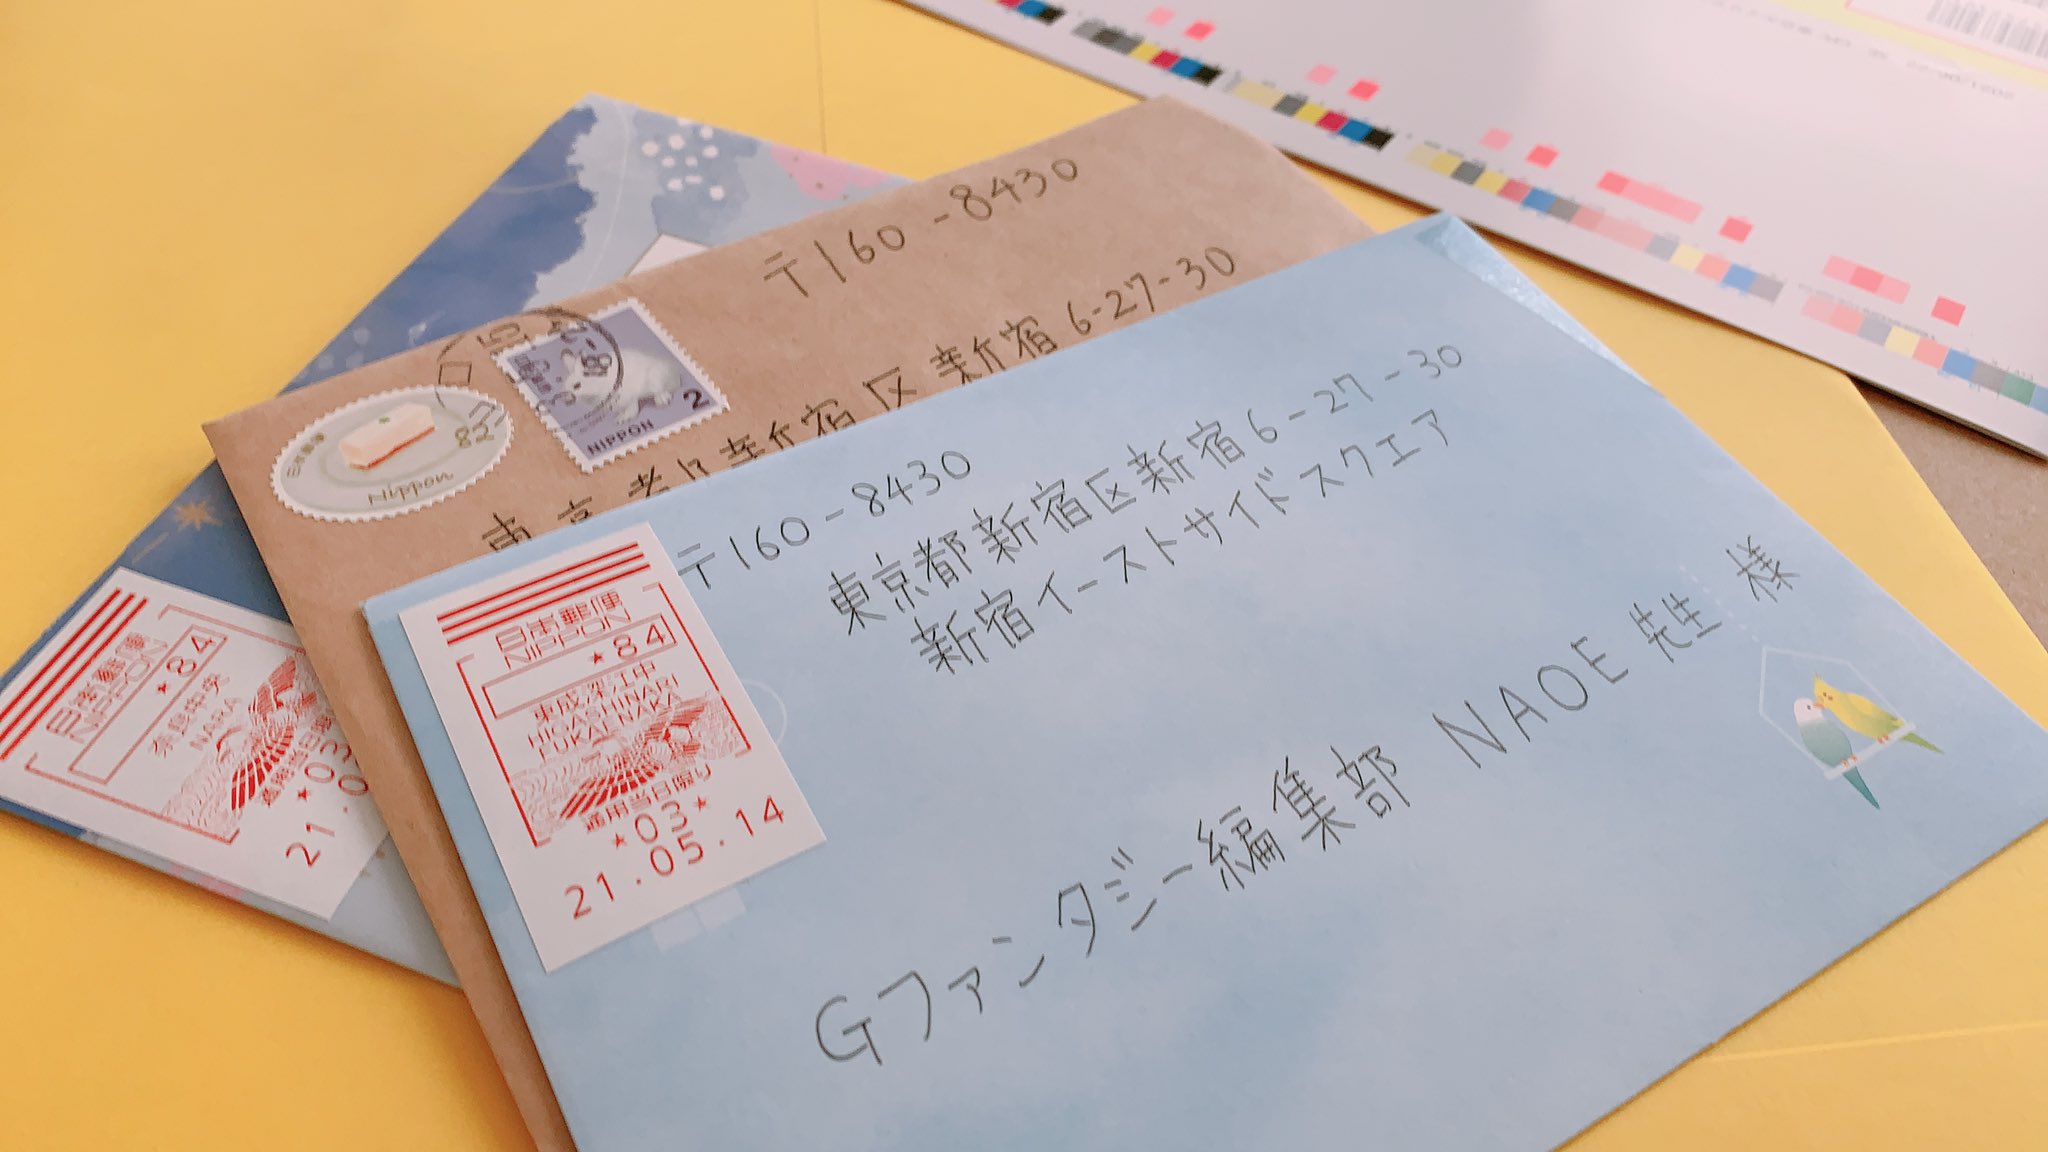 〒160-8430
東京都新宿区新宿6-27-30
新宿イーストサイドスクエア
Gファンタジー編集部 NAOE先生 様
日本郵便
NIPPON
*84
東成深江中
HIGASHINARI
FUKAENAKA
適用当日限り
*03*
21.05.14
〒160-8430
新宿区新宿6-27-30
日本郵便
82
Nippon
2
NIPPON
日本郵便
NIPPON
*84
奈良中央
NARA
*03
21.0